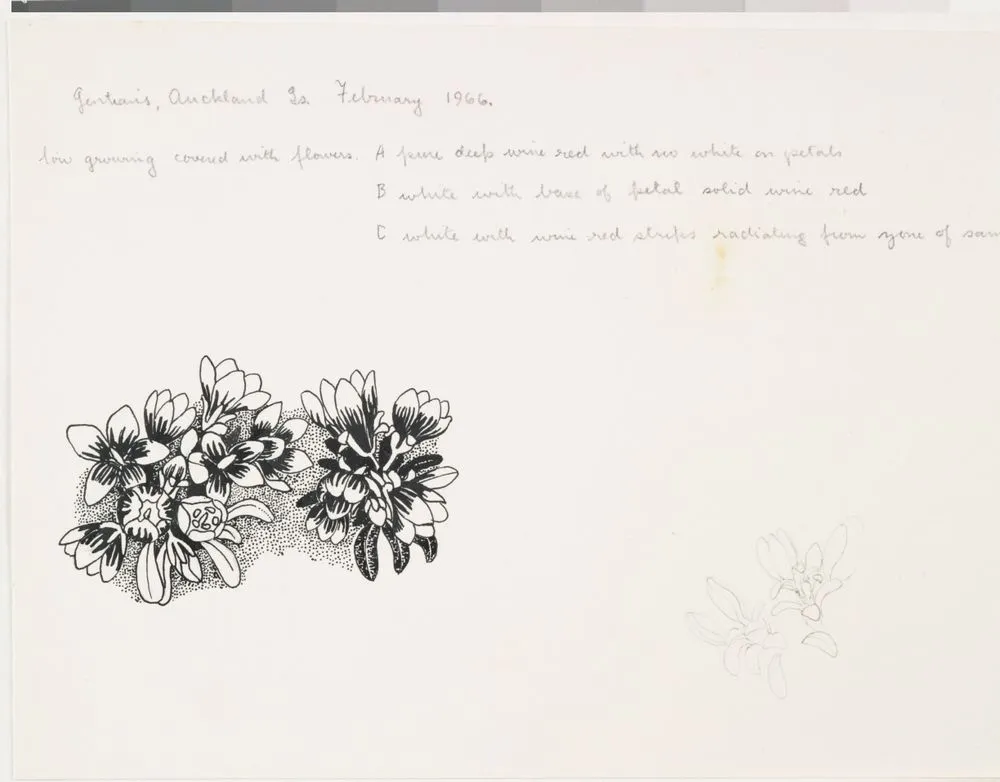 Gentians, Auckland Is. February 1966.
low growing covered with flowers. A pure deep wine red with no white on petals
B white with base of petal solid wine red
C white with wine red strips radiating from zone of sam